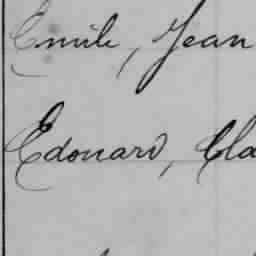 Emile, Jean
Edouard, Cla